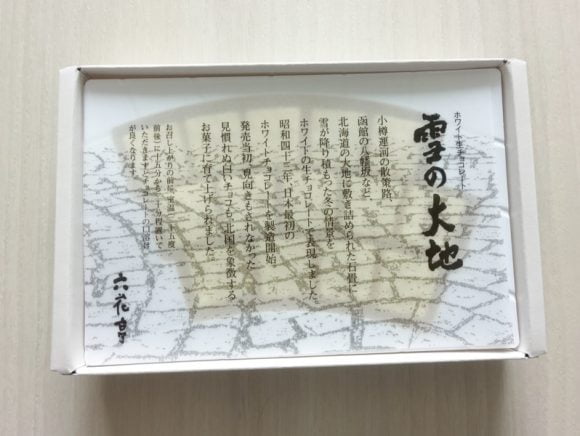 ホワイト生チョコレート
雪の大地
小樽運河の散策路、
函館の八幡坂など、
北海道の大地に敷き詰められた石畳に
雪が降り積もった冬の情景を
ホワイトの生チョコレートで表現しました。
昭和四十三年、日本最初の
ホワイトチョコレートを製造開始。
発売当初、見向きもされなかった
見慣れぬ白いチョコも、北国を象徴する
お菓子に育て上げられました。
お召し上がりの前に、室温（二十五度
前後）に十五分から二十分程置いて
いただきますとチョコレートの口溶け
が良くなります。
六花亭